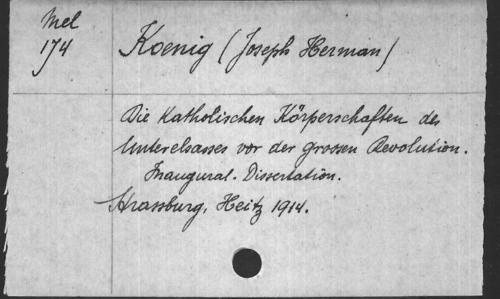 Mel
174
Koenig (Joseph Herman)
Die Katholischen Körperschaften des
Unterelsasses vor der grossen Revolution.
Inaugural-Dissertation.
Strassburg, Heitz 1914.